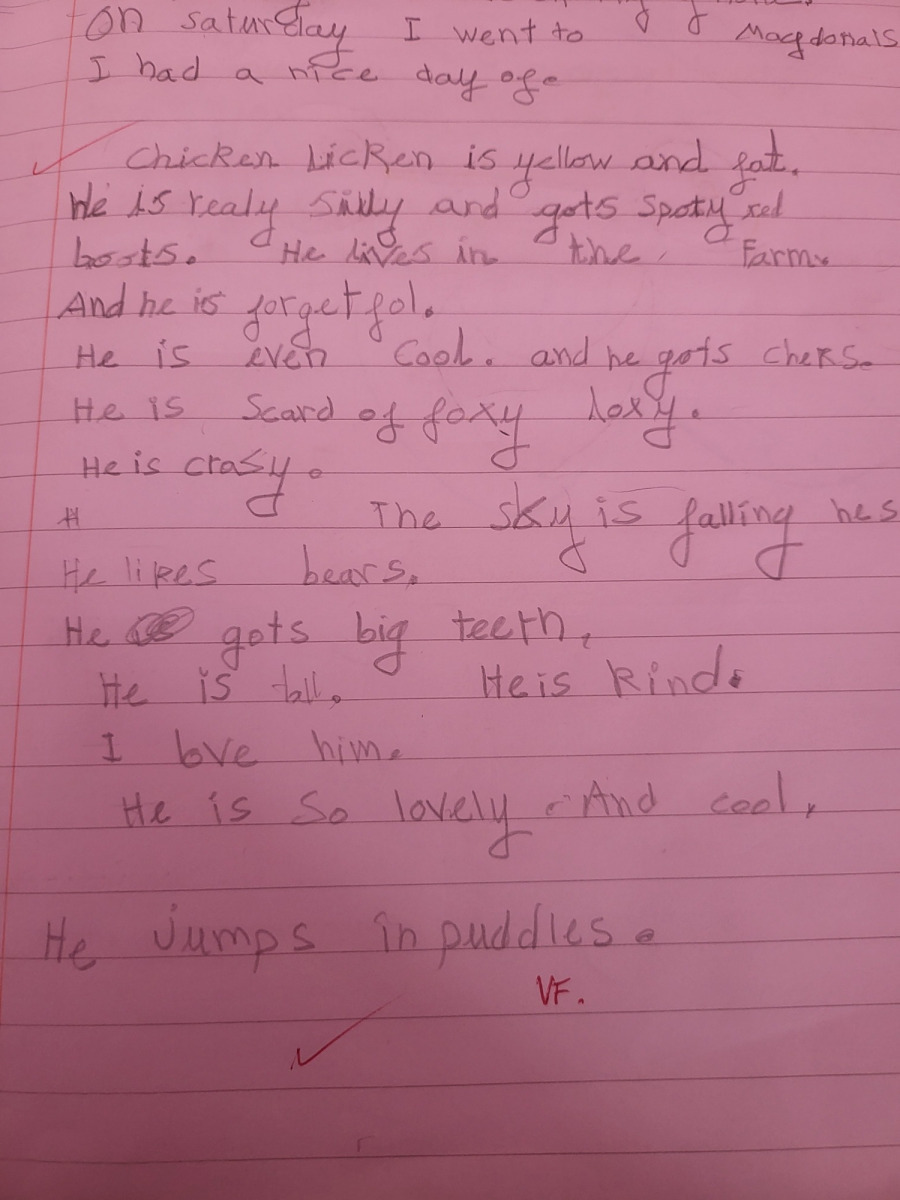 On saturday I went to Macgdonals
I had a nice day of.
Chicken Licken is yellow and fat.
He is realy silly and gots spoty red
boots. He lives in the Farm.
And he is forgetfol.
He is even Cool. and he gots cheks.
He is Scard of foxy loxy.
He is crasy.
The sky is falling hes
He likes bears.
He gots big teeth,
He is tall. He is kind.
I love him.
He is So lovely. And cool,
He Jumps in puddles.
VF.